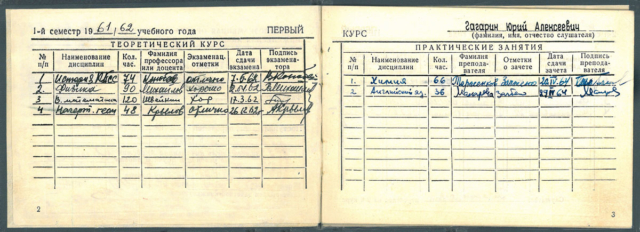 1-й семестр 1961/62 учебного года ПЕРВЫЙ
ТЕОРЕТИЧЕСКИЙ КУРС
№ п/п Наименование дисциплин Кол. час. Фамилия профессора или доцента Экзаменац. отметки Дата сдачи экзамена Подпись экзаменатора
1 История КПСС 44 отлично 7.6.62
2. Физика 90 Михайлов хорошо
3 В. математика 120 Швейкин Хор 17.3.62
4 48 Крылов отлично 26.12.62г.
2
КУРС Гагарин Юрий Алексеевич
(фамилия, имя, отчество слушателя)
ПРАКТИЧЕСКИЕ ЗАНЯТИЯ
№ п/п Наименование дисциплин Кол. час. Фамилия преподавателя Отметки о зачете Дата сдачи зачета Подпись преподавателя
1. Химия 66
2 Английский яз. 36
3